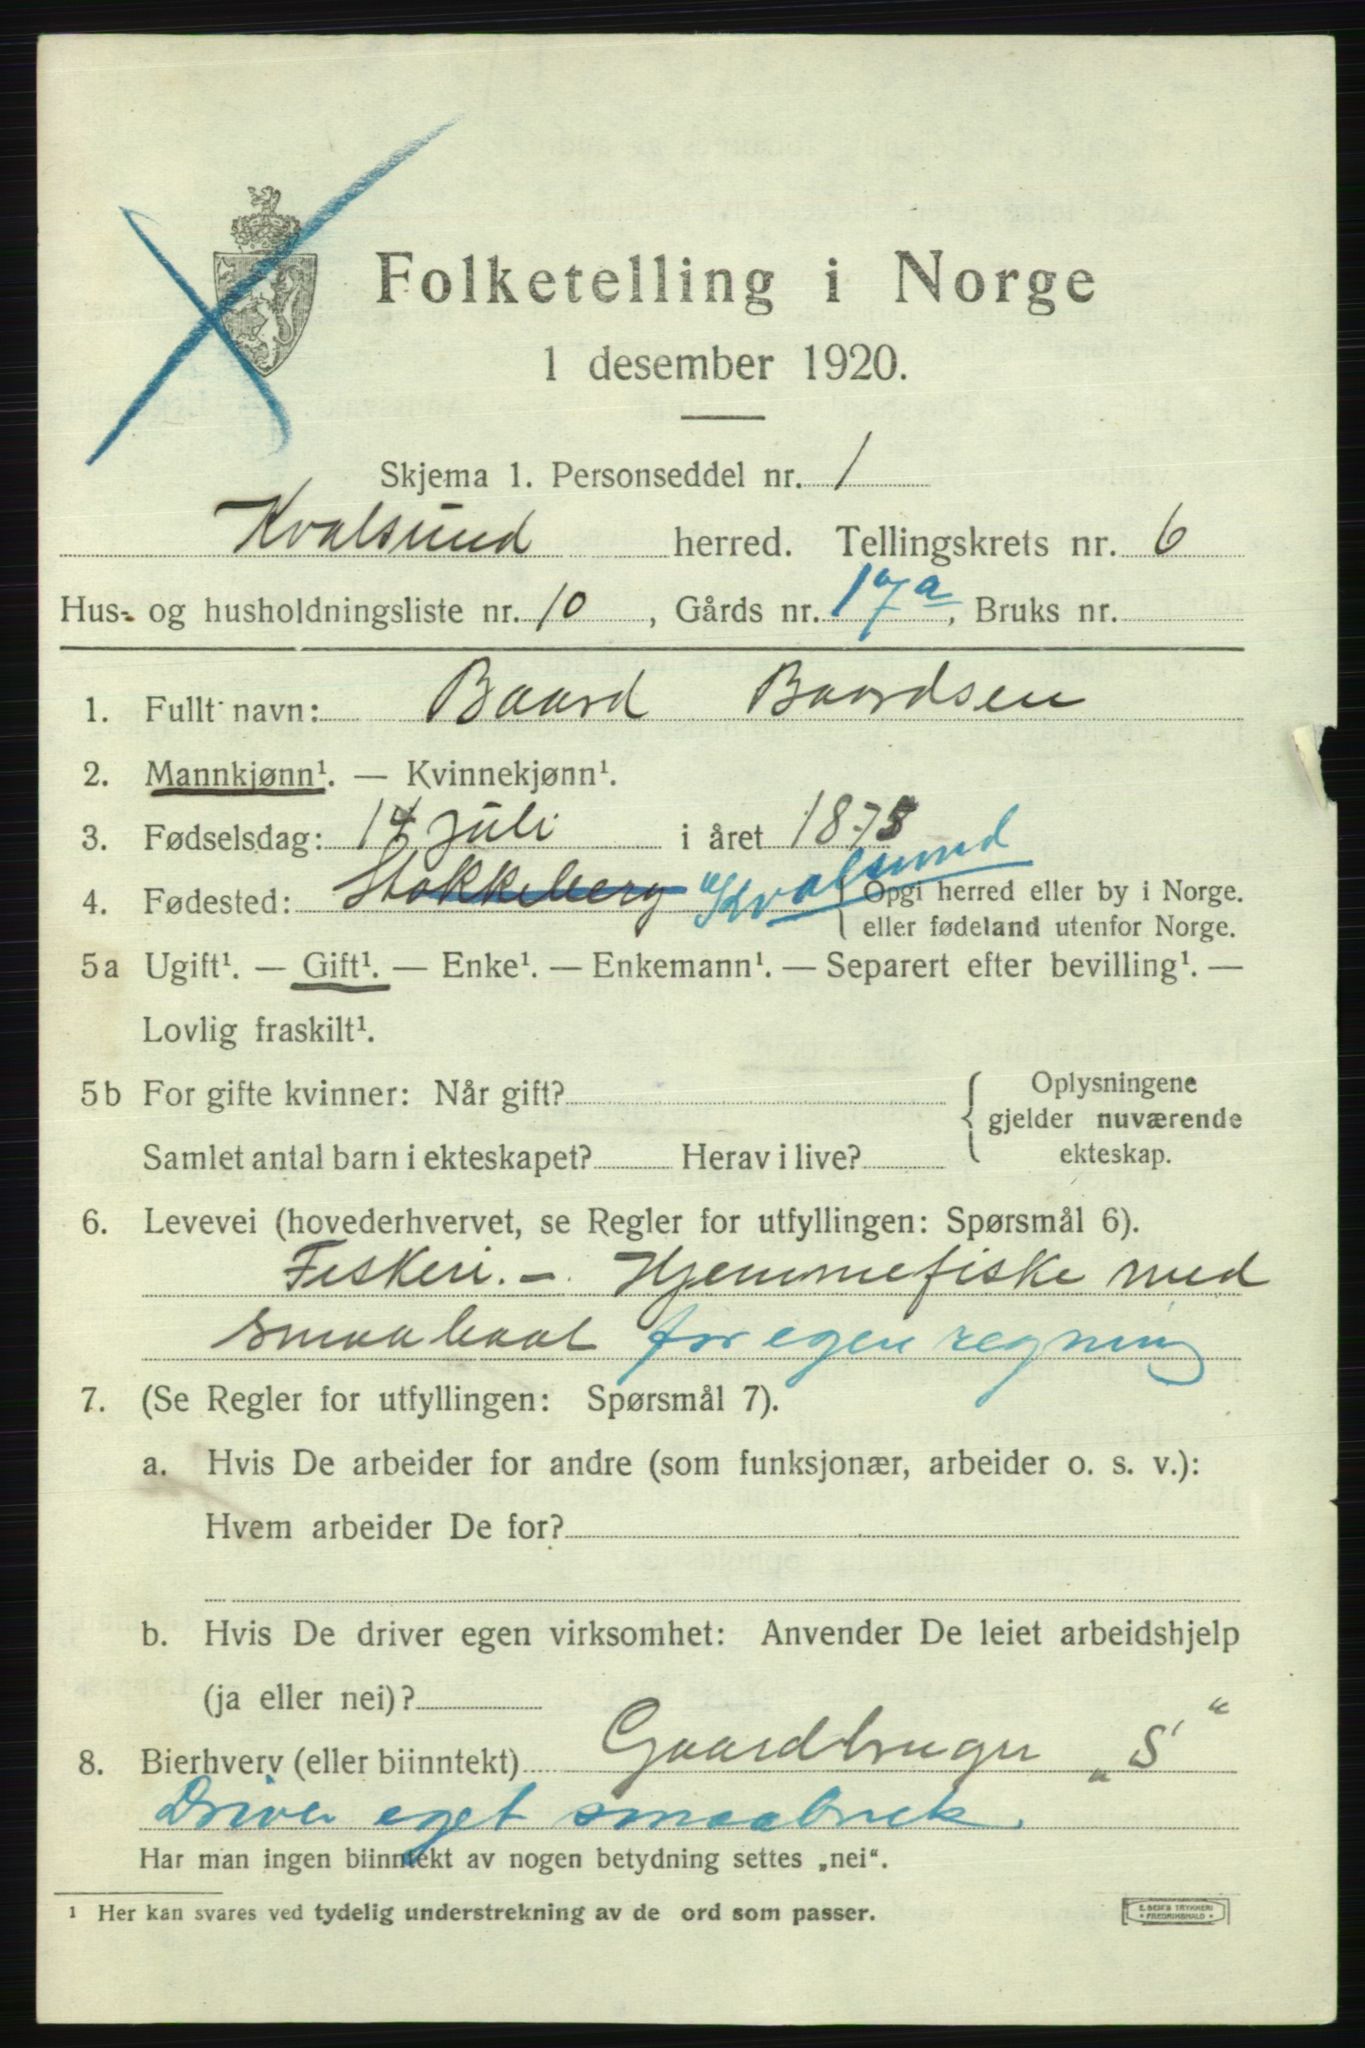 Folketelling i Norge
1 desember 1920.
Skjema 1. Personseddel nr. 1
Kvalsund herred. Tellingskrets nr. 6
Hus- og husholdningsliste nr. 10, Gårds nr. 17a, Bruks nr.
1. Fullt navn: Baard Baardsen
2. Mannkjønn¹. — Kvinnekjønn¹.
3. Fødselsdag: 14 juli i året 1873
4. Fødested: Stokkeberg Kvalsund { Opgi herred eller by i Norge.
eller fødeland utenfor Norge.
5a Ugift¹. — Gift¹. — Enke¹. — Enkemann¹. — Separert efter bevilling¹. —
Lovlig fraskilt¹.
5b For gifte kvinner: Når gift? { Oplysningene
gjelder nuværende
Samlet antal barn i ekteskapet? Herav i live? ekteskap.
6. Levevei (hovederhvervet, se Regler for utfyllingen: Spørsmål 6).
Fiskeri. – Hjemmefiske med
smaabaat for egen regning
7. (Se Regler for utfyllingen: Spørsmål 7).
a. Hvis De arbeider for andre (som funksjonær, arbeider o. s. v.):
Hvem arbeider De for?
b. Hvis De driver egen virksomhet: Anvender De leiet arbeidshjelp
(ja eller nei)?
8. Bierhverv (eller biinntekt) Gaardbruger „S“
Driver eget smaabruk.
Har man ingen biinntekt av nogen betydning settes „nei“.
¹ Her kan svares ved tydelig understrekning av de ord som passer.
E. SEMS TRYKKERI
• FREDRIKSHALD •